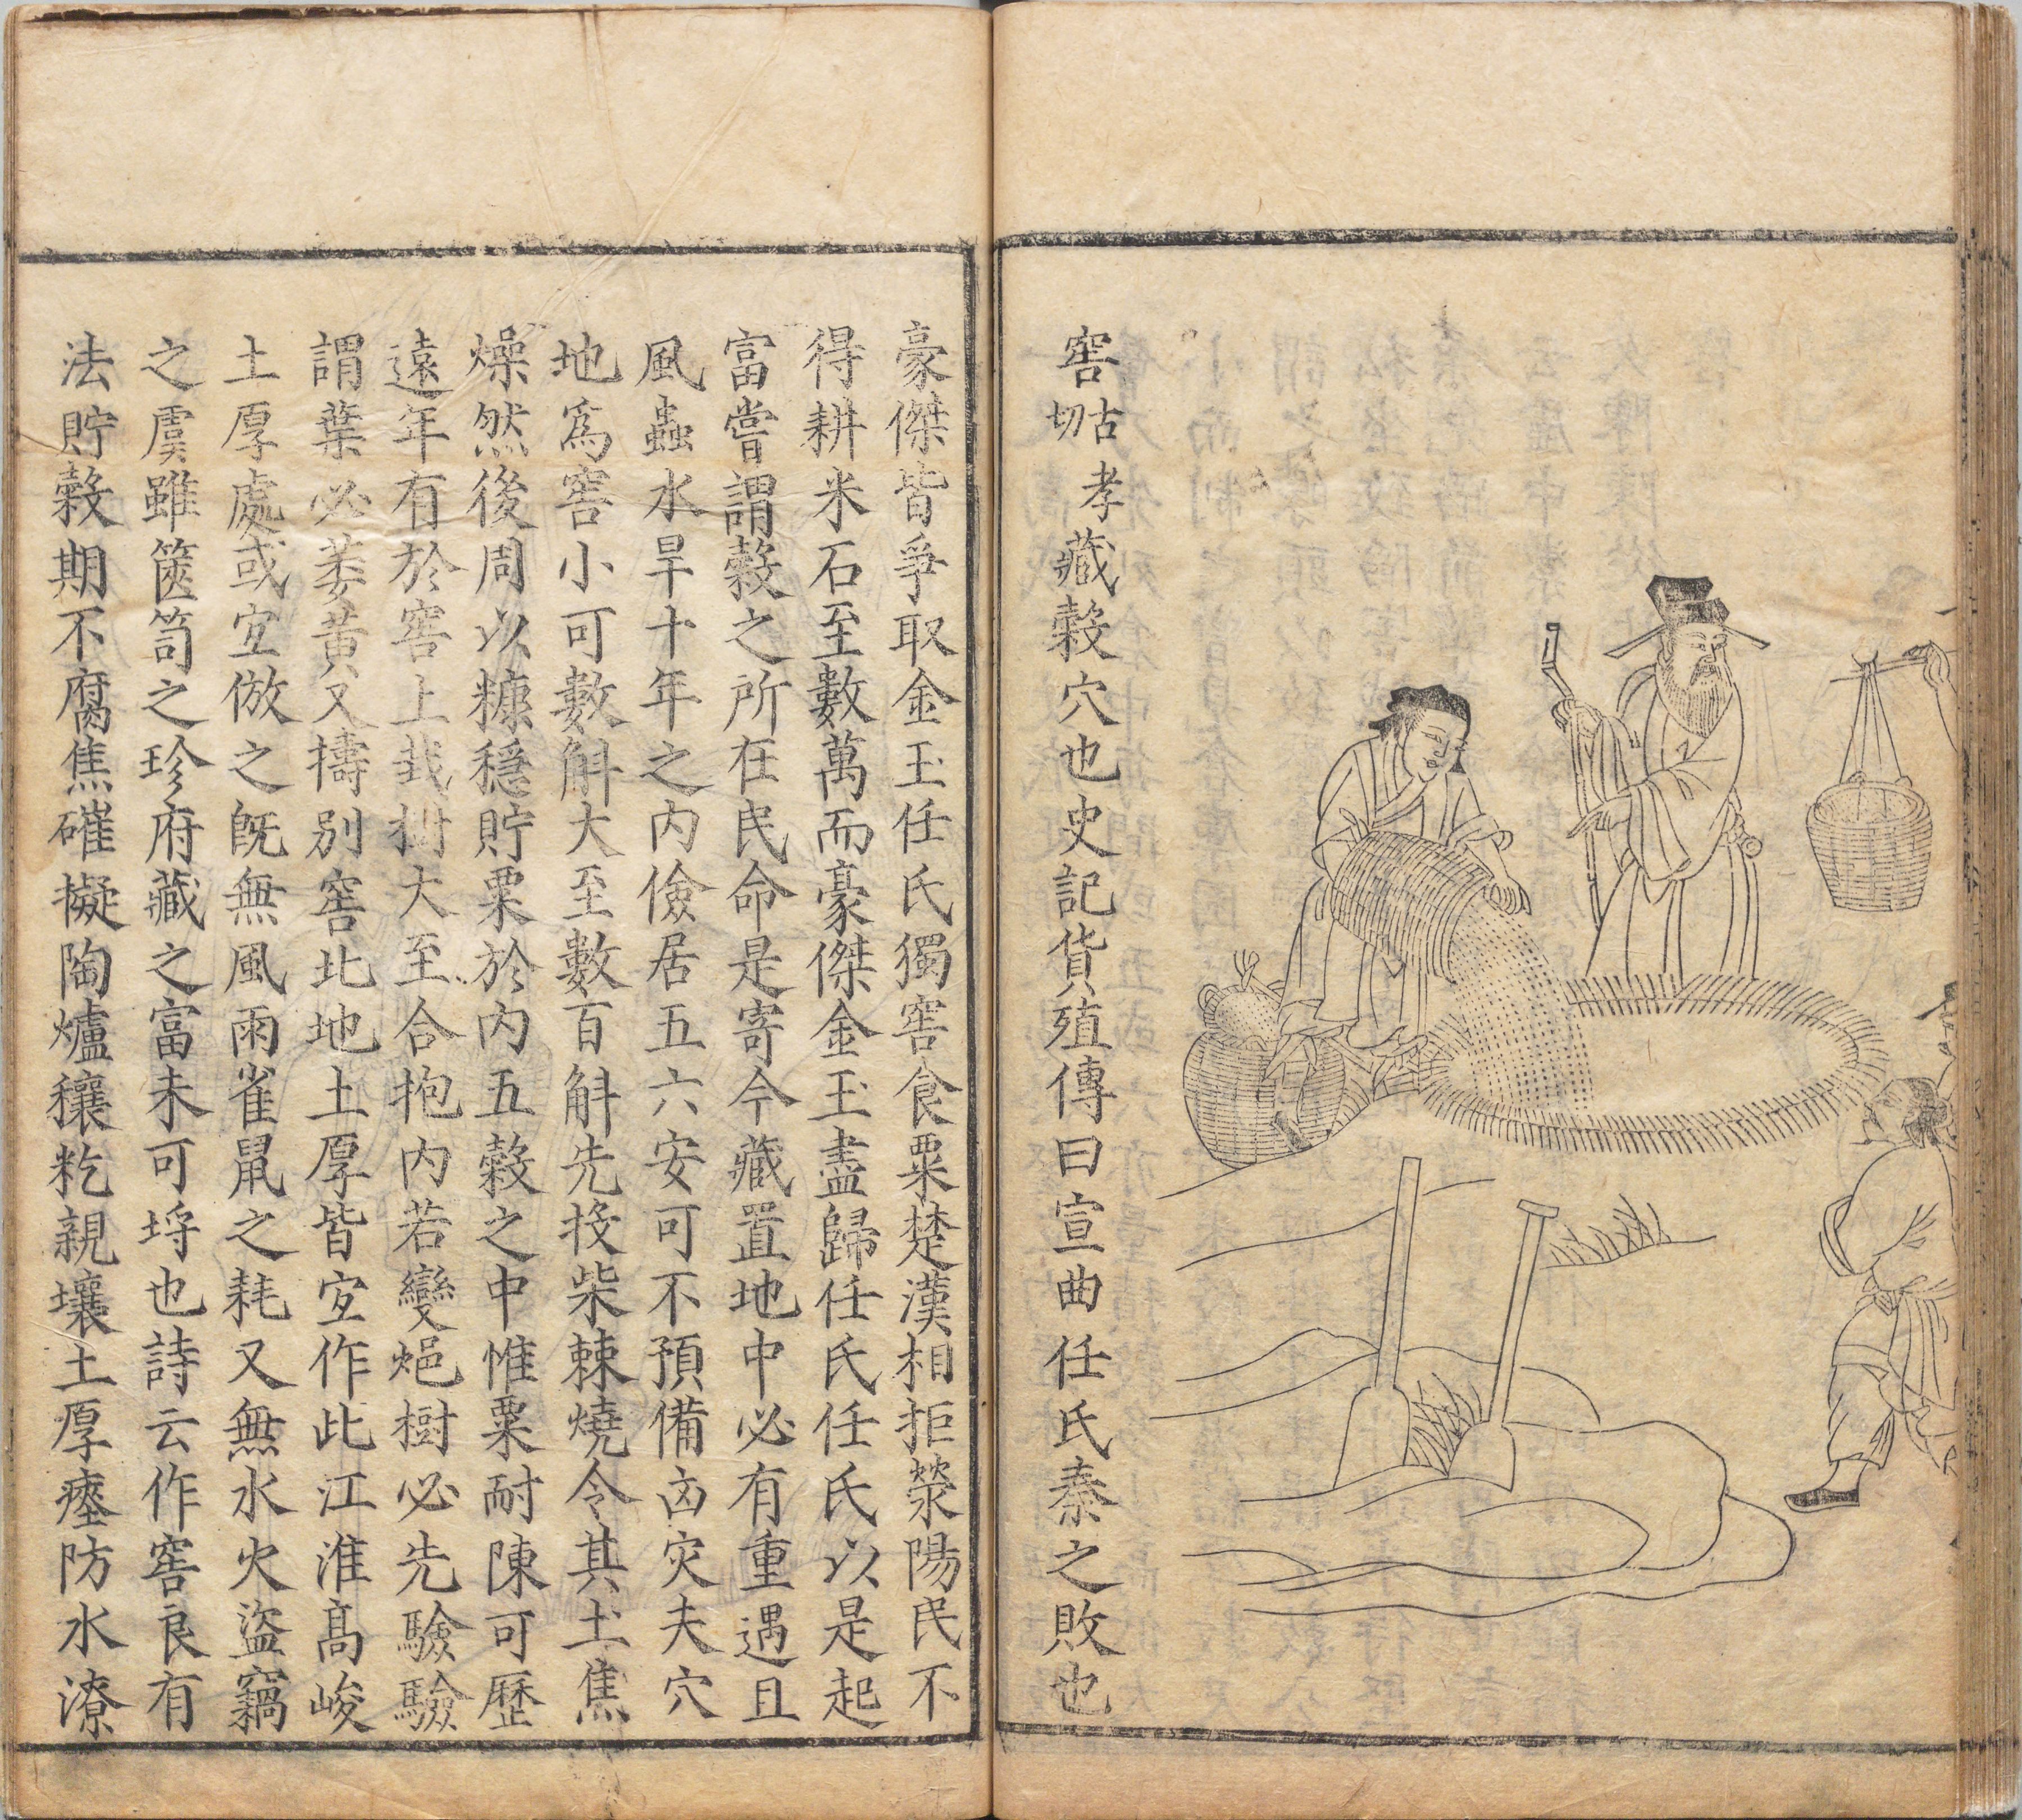 窖古孝切藏穀穴也史記貨殖傳曰宣曲任氏秦之敗也
豪傑皆爭取金玉任氏獨窖食粟楚漢相拒滎陽民不
得耕米石至數萬而豪傑金玉盡歸任氏任氏以是起
富嘗謂穀之所在民命是寄今藏置地中必有重遇且
風蟲水旱十年之内儉居五六安可不預備凶灾夫穴
地爲窖小可數斛大至數百斛先投柴棘燒令其土焦
燥然後周以糠穩貯粟於内五穀之中惟粟耐陳可歷
遠年有於窖上栽樹大至合抱内若變浥樹必先驗驗
謂葉必萎黃又擣別窖北地土厚皆宜作此江淮髙峻
土厚處或宜倣之旣無風雨雀鼠之耗又無水火盜竊
之虞雖篋笥之珍府藏之富未可埒也詩云作窖良有
法貯穀期不腐焦磪擬陶爐穰籺親壤土厚瘞防水潦